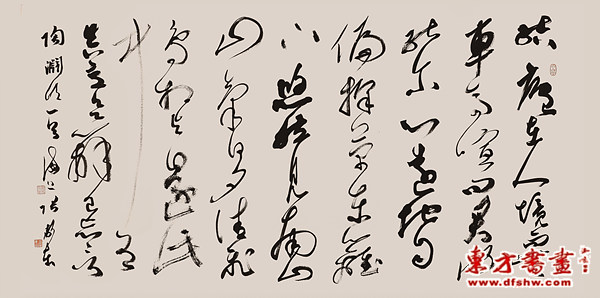 結廬在人境而無
車馬喧問君何
能尔心遠地自
偏採菊東籬
下悠然見南山
山氣日夕佳飛
鳥相與還此
中有
真意欲辨已忘言
陶淵明
東方書畫
www.dfshw.com